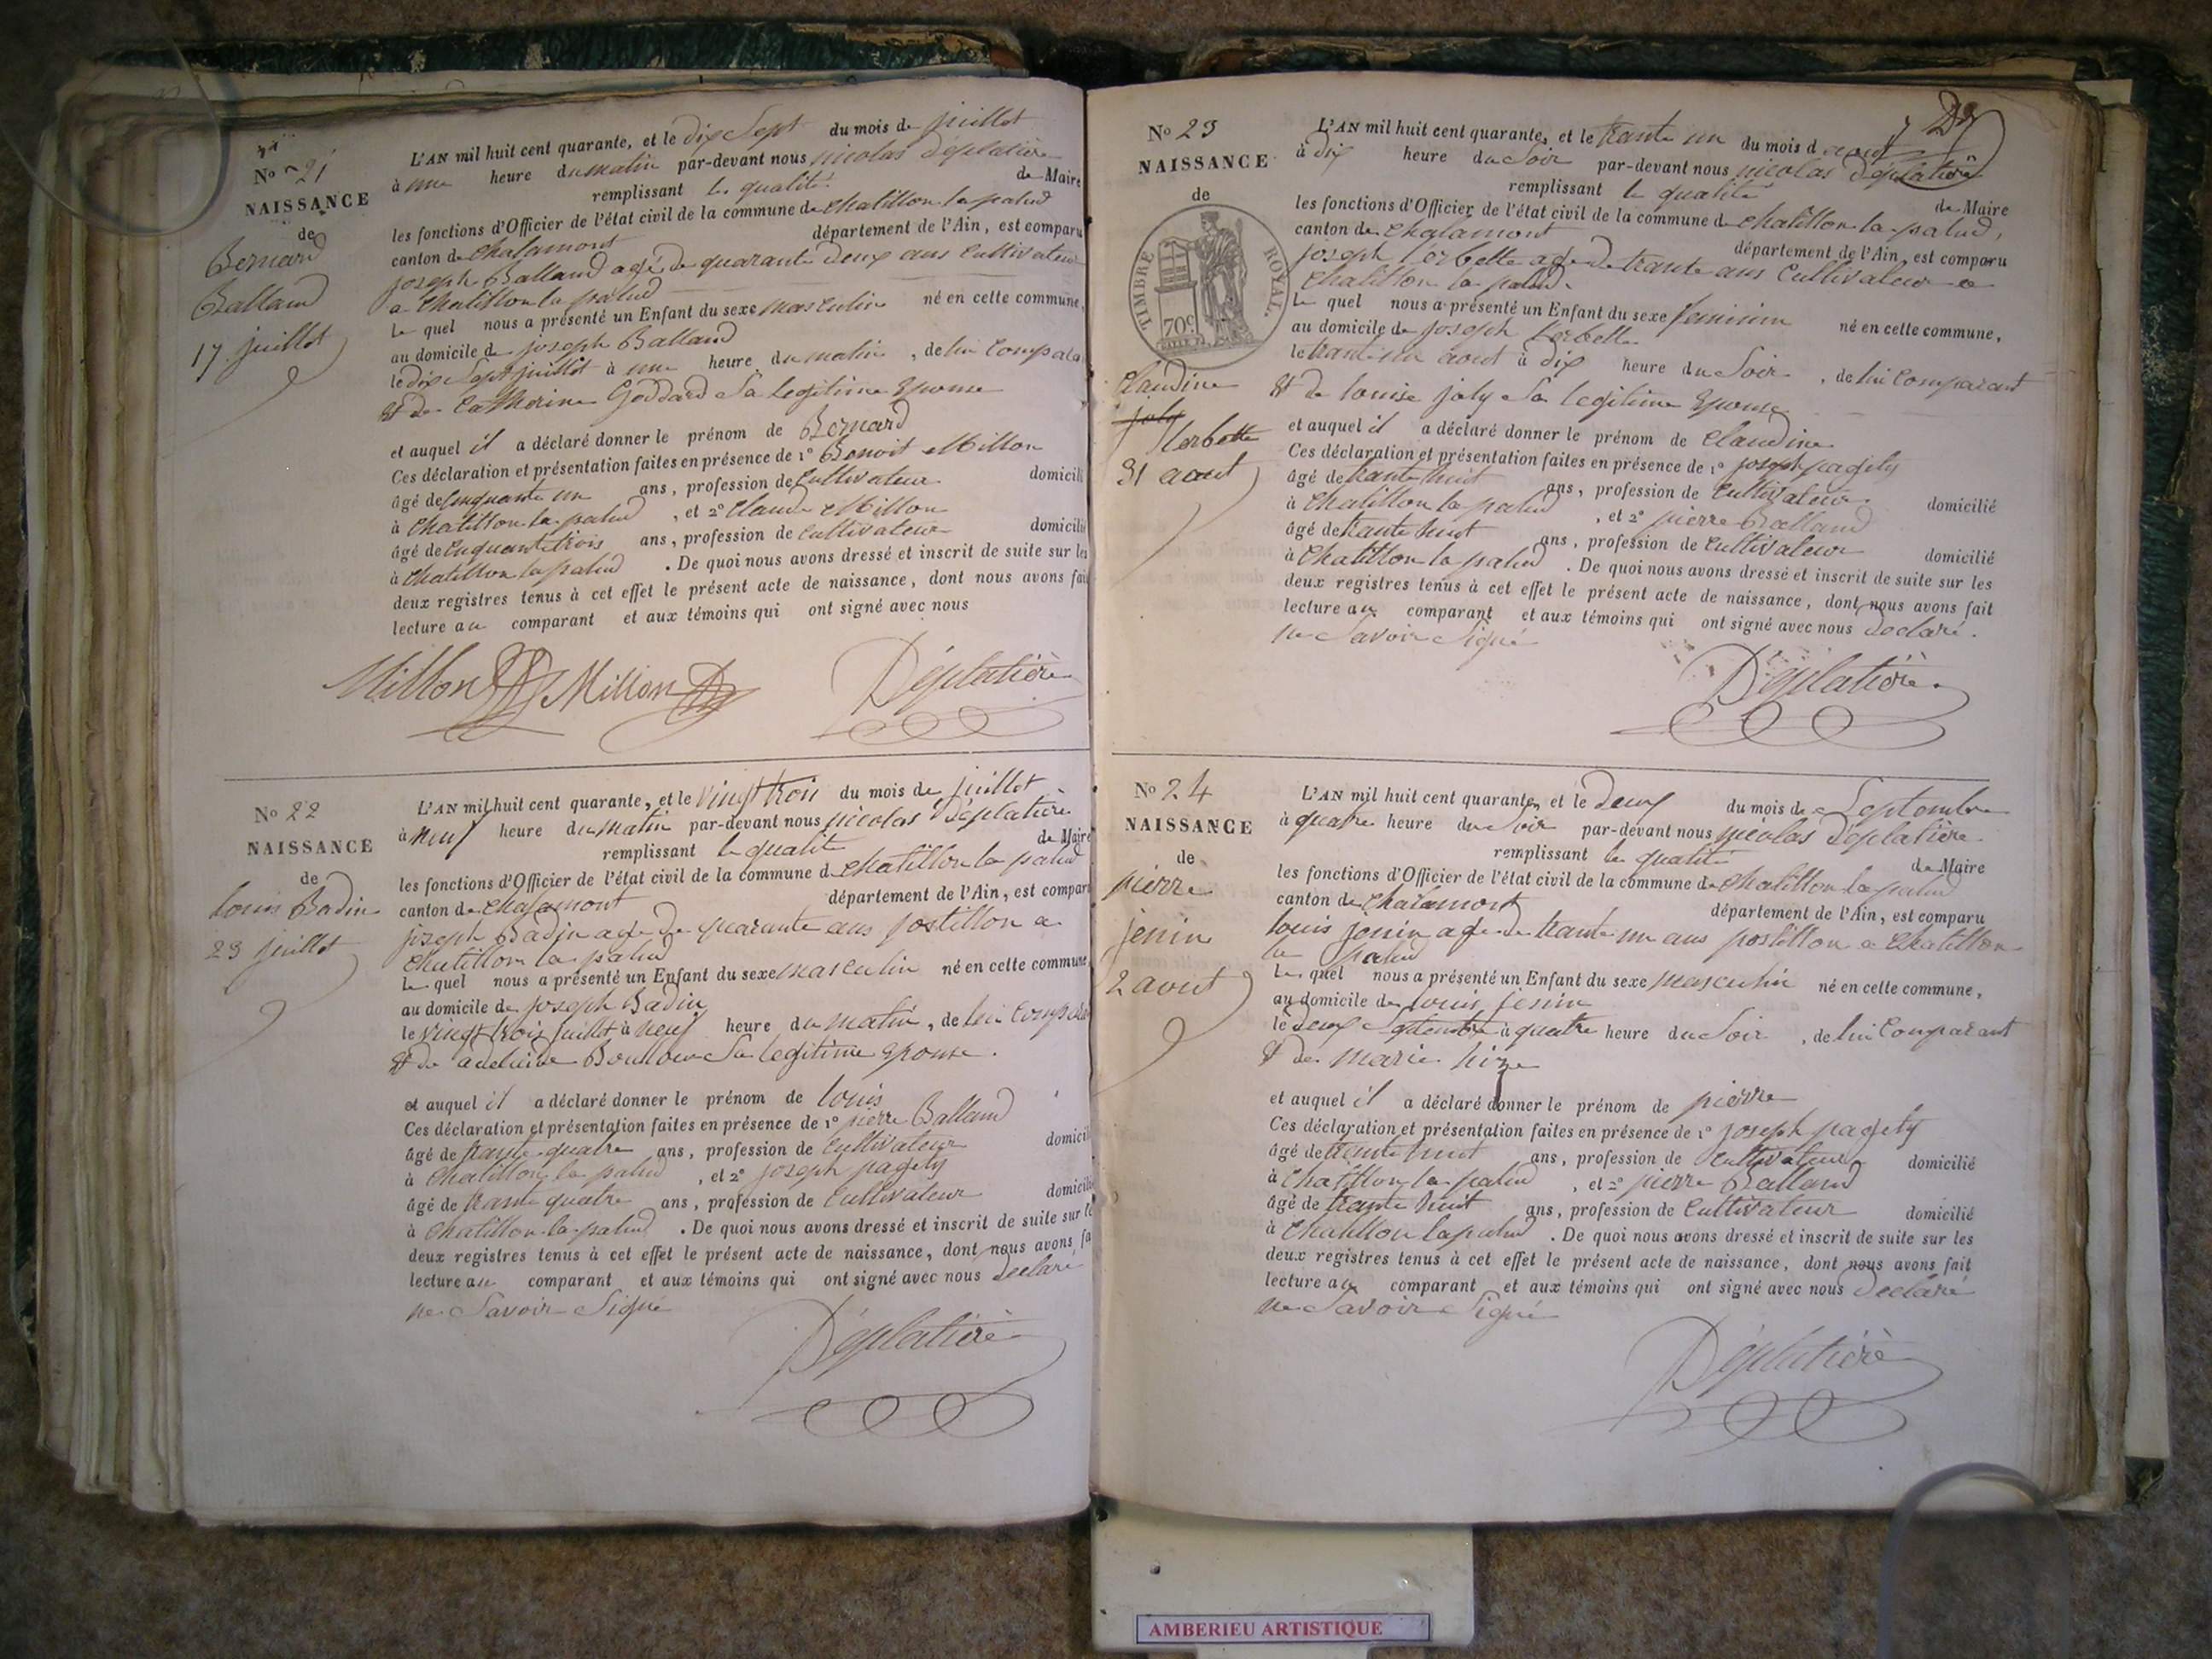 No 21
NAISSANCE
de
Bernard
Balland
17 juillet
L'AN mil huit cent quarante, et le dix Sept du mois de juillet
à une heure du matin par-devant nous nicolas Déplatière
remplissant la qualité de Maire
les fonctions d'Officier de l'état civil de la commune de chatillon la palud
canton de chalamont département de l'Ain, est comparu
joseph Balland agé de quarante deux ans Cultivateur
a chatillon la palud
Le quel nous a présenté un Enfant du sexe masculin né en cette commune,
au domicile de joseph Balland
le dix Sept juillet à une heure du matin, de lui Compara
Et de Catherine Goddard Sa legitime Epouse
et auquel il a déclaré donner le prénom de Bernard
Ces déclaration et présentation faites en présence de 1° Benoit Millon
âgé de Cinquante un ans, profession de Cultivateur domicili
à Chatillon la palud, et 2° Claude Millon
âgé de Cinquante trois ans, profession de Cultivateur domicilié
à Chatillon la palud. De quoi nous avons dressé et inscrit de suite sur les
deux registres tenus à cet effet le présent acte de naissance, dont nous avons fai
lecture au comparant et aux témoins qui ont signé avec nous
Millon Millon Déplatière
No 22
NAISSANCE
de
louis Badin
23 juillet
L'AN mil huit cent quarante, et le Vingt trois du mois de juillet
à neuf heure du matin par-devant nous nicolas Déplatière
remplissant la qualité de Maire
les fonctions d'Officier de l'état civil de la commune d chatillon la palud
canton de chalamont département de l'Ain, est compar
joseph Badin age de quarante ans postillon a
chatillon la palud
Le quel nous a présenté un Enfant du sexe masculin né en cette commune
au domicile de joseph Badin
le Vingt trois juillet à neuf heure du matin, de lui Compara
Et de adelaide Sa legitime Epouse.
et auquel il a déclaré donner le prénom de louis
Ces déclaration et présentation faites en présence de 1° pierre Balland
âgé de trante quatre ans, profession de Cultivateur domicili
à Chatillon la palud, et 2° joseph pagely
âgé de trante quatre ans, profession de Cultivateur domicilié
à Chatillon la palud. De quoi nous avons dressé et inscrit de suite sur le
deux registres tenus à cet effet le présent acte de naissance, dont nous avons fa
lecture au comparant et aux témoins qui ont signé avec nous Declare
ne Savoir Signé
Déplatière
No 23
NAISSANCE
de
TIMBRE ROYAL.
70c
Claudine
joly
lerbette
31 aout
L'AN mil huit cent quarante, et le trante un du mois d aout
à dix heure du Soir par-devant nous nicolas Déplatière
remplissant la qualité de Maire
les fonctions d'Officier de l'état civil de la commune d chatillon la palud,
canton de chalamont département de l'Ain, est comparu
joseph lerbette age de trante ans Cultivateur a
Chatillon la palud.
Le quel nous a présenté un Enfant du sexe feminin né en cette commune,
au domicile de joseph lerbette
le trante un aout à dix heure du Soir, de lui Comparant
Et de louise joly Sa legitime Epouse
et auquel il a déclaré donner le prénom de Claudine
Ces déclaration et présentation faites en présence de 1° joseph pagely
âgé de trante huit ans, profession de Cultivateur domicilié
à Chatillon la palud, et 2° pierre Balland
âgé de trante huit ans, profession de Cultivateur domicilié
à Chatillon la palud. De quoi nous avons dressé et inscrit de suite sur les
deux registres tenus à cet effet le présent acte de naissance, dont nous avons fait
lecture au comparant et aux témoins qui ont signé avec nous Declaré.
ne Savoir Signé
Déplatière
No 24
NAISSANCE
de
pierre
jenin
2 aout
L'AN mil huit cent quarante, et le deux du mois de Septembre
à quatre heure du Soir par-devant nous nicolas Déplatière
remplissant la qualité de Maire
les fonctions d'Officier de l'état civil de la commune d chatillon la palud
canton de chalamont département de l'Ain, est comparu
louis jenin age de trante un ans postillon a Chatillon
la palud
Le quel nous a présenté un Enfant du sexe masculin né en cette commune,
au domicile de louis jenin
le deux Septembre à quatre heure du Soir, de lui Comparant
Et de marie
et auquel il a déclaré donner le prénom de pierre
Ces déclaration et présentation faites en présence de 1° joseph pagely
âgé de trente huit ans, profession de Cultivateur domicilié
à Chatillon la palud, et 2° pierre Balland
âgé de trante huit ans, profession de Cultivateur domicilié
à Chatillon la palud. De quoi nous avons dressé et inscrit de suite sur les
deux registres tenus à cet effet le présent acte de naissance, dont nous avons fait
lecture au comparant et aux témoins qui ont signé avec nous Declaré
ne Savoir Signé
Déplatière
AMBERIEU ARTISTIQUE